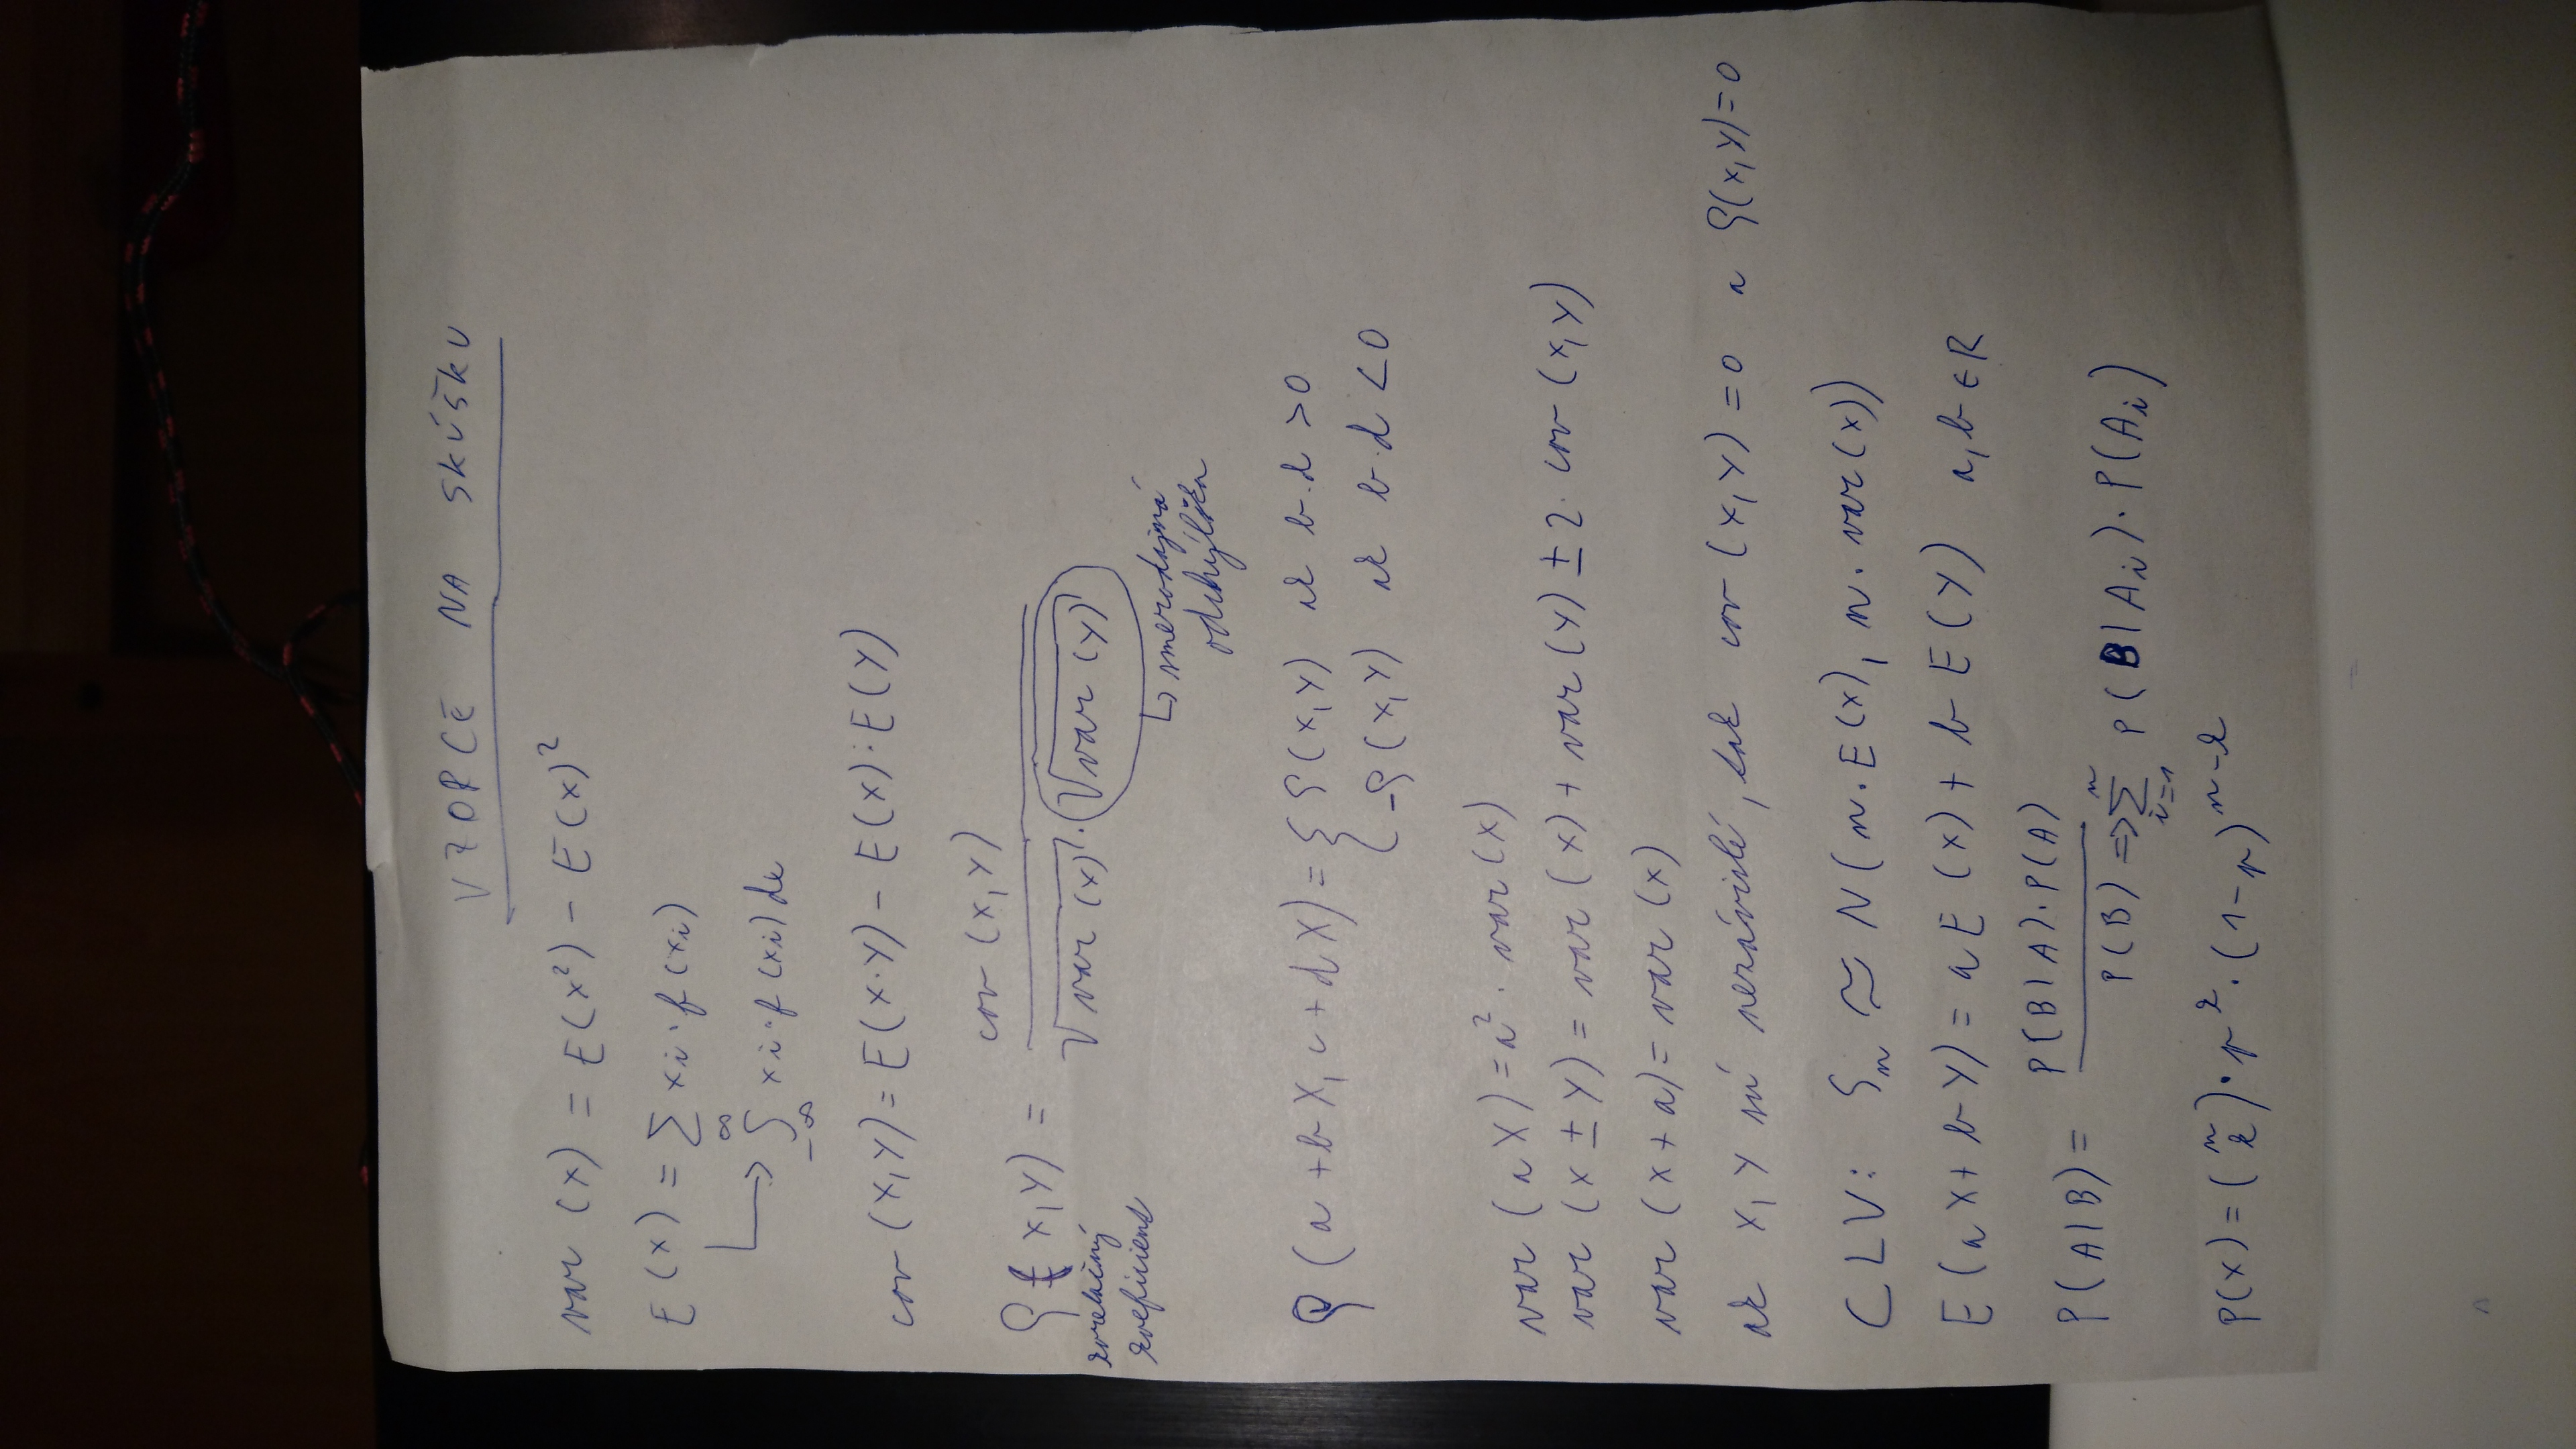 VZORCE NA SKÚŠKU
var (x) = E(x²) - E(x)²
E(x) = ∑ xi · f(xi)
∞
∫ xi · f(xi) dx
-∞
cov (X,Y) = E(X·Y) - E(X)·E(Y)
cov (X,Y)
ρ(X,Y) =
√var(x) · √var(y)
korelačný
koeficient
↳ smerodajná
odchýlka
ρ (a + bX, c + dX) = { ρ(X,Y) ak b.d > 0
-ρ(X,Y) ak b.d < 0
var (aX) = a² · var(X)
var (X ± Y) = var (X) + var (Y) ± 2 · cov (X,Y)
var (x + a) = var (x)
ak X, Y sú nezávislé, tak cov (X,Y) = 0 a ρ(X,Y) = 0
CLV: Sn ≅ N(n · E(x), n · var(x))
E(aX + bY) = aE(X) + bE(Y) a, b ∈ R
P(B|A)·P(A)
P(A|B) =
P(B) => ∑ⁿᵢ₌₁ P(B|Ai) · P(Ai)
P(x) = (n k) · p^k · (1-p)^n-k